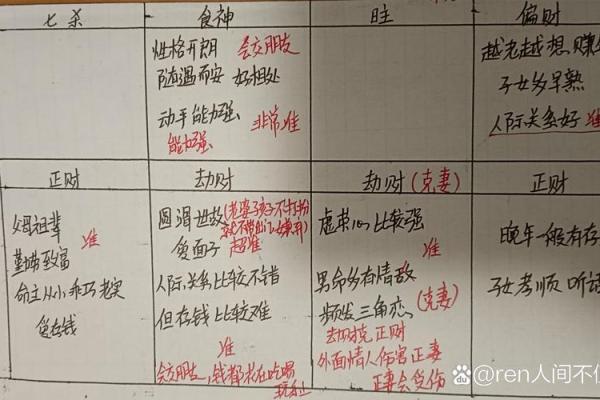 七杀
食神
日主
偏财
性格开朗 会交朋友
随遇而安 好相处
动手能力强 非常准
能力强
越老越想赚
子女多早熟
人际关系好 准
正财
劫财
劫财(克妻)
正财
父母祖辈
准
勤劳致富
命主从小乖巧老实
爱存钱
圆滑世故(老婆孩子不打扮
就不带出门嫌弃)
爱面子 超准
人际关系比较不错
但存钱比较难
准
会交朋友,钱都花在吃喝
玩乐上
虚荣心比较强
准
男命多有情敌
频发三角恋(克妻)
劫财克正财
外面情人伤害正妻
正妻会受伤
晚年一般有存
子女孝顺 听话
@ren人间不值